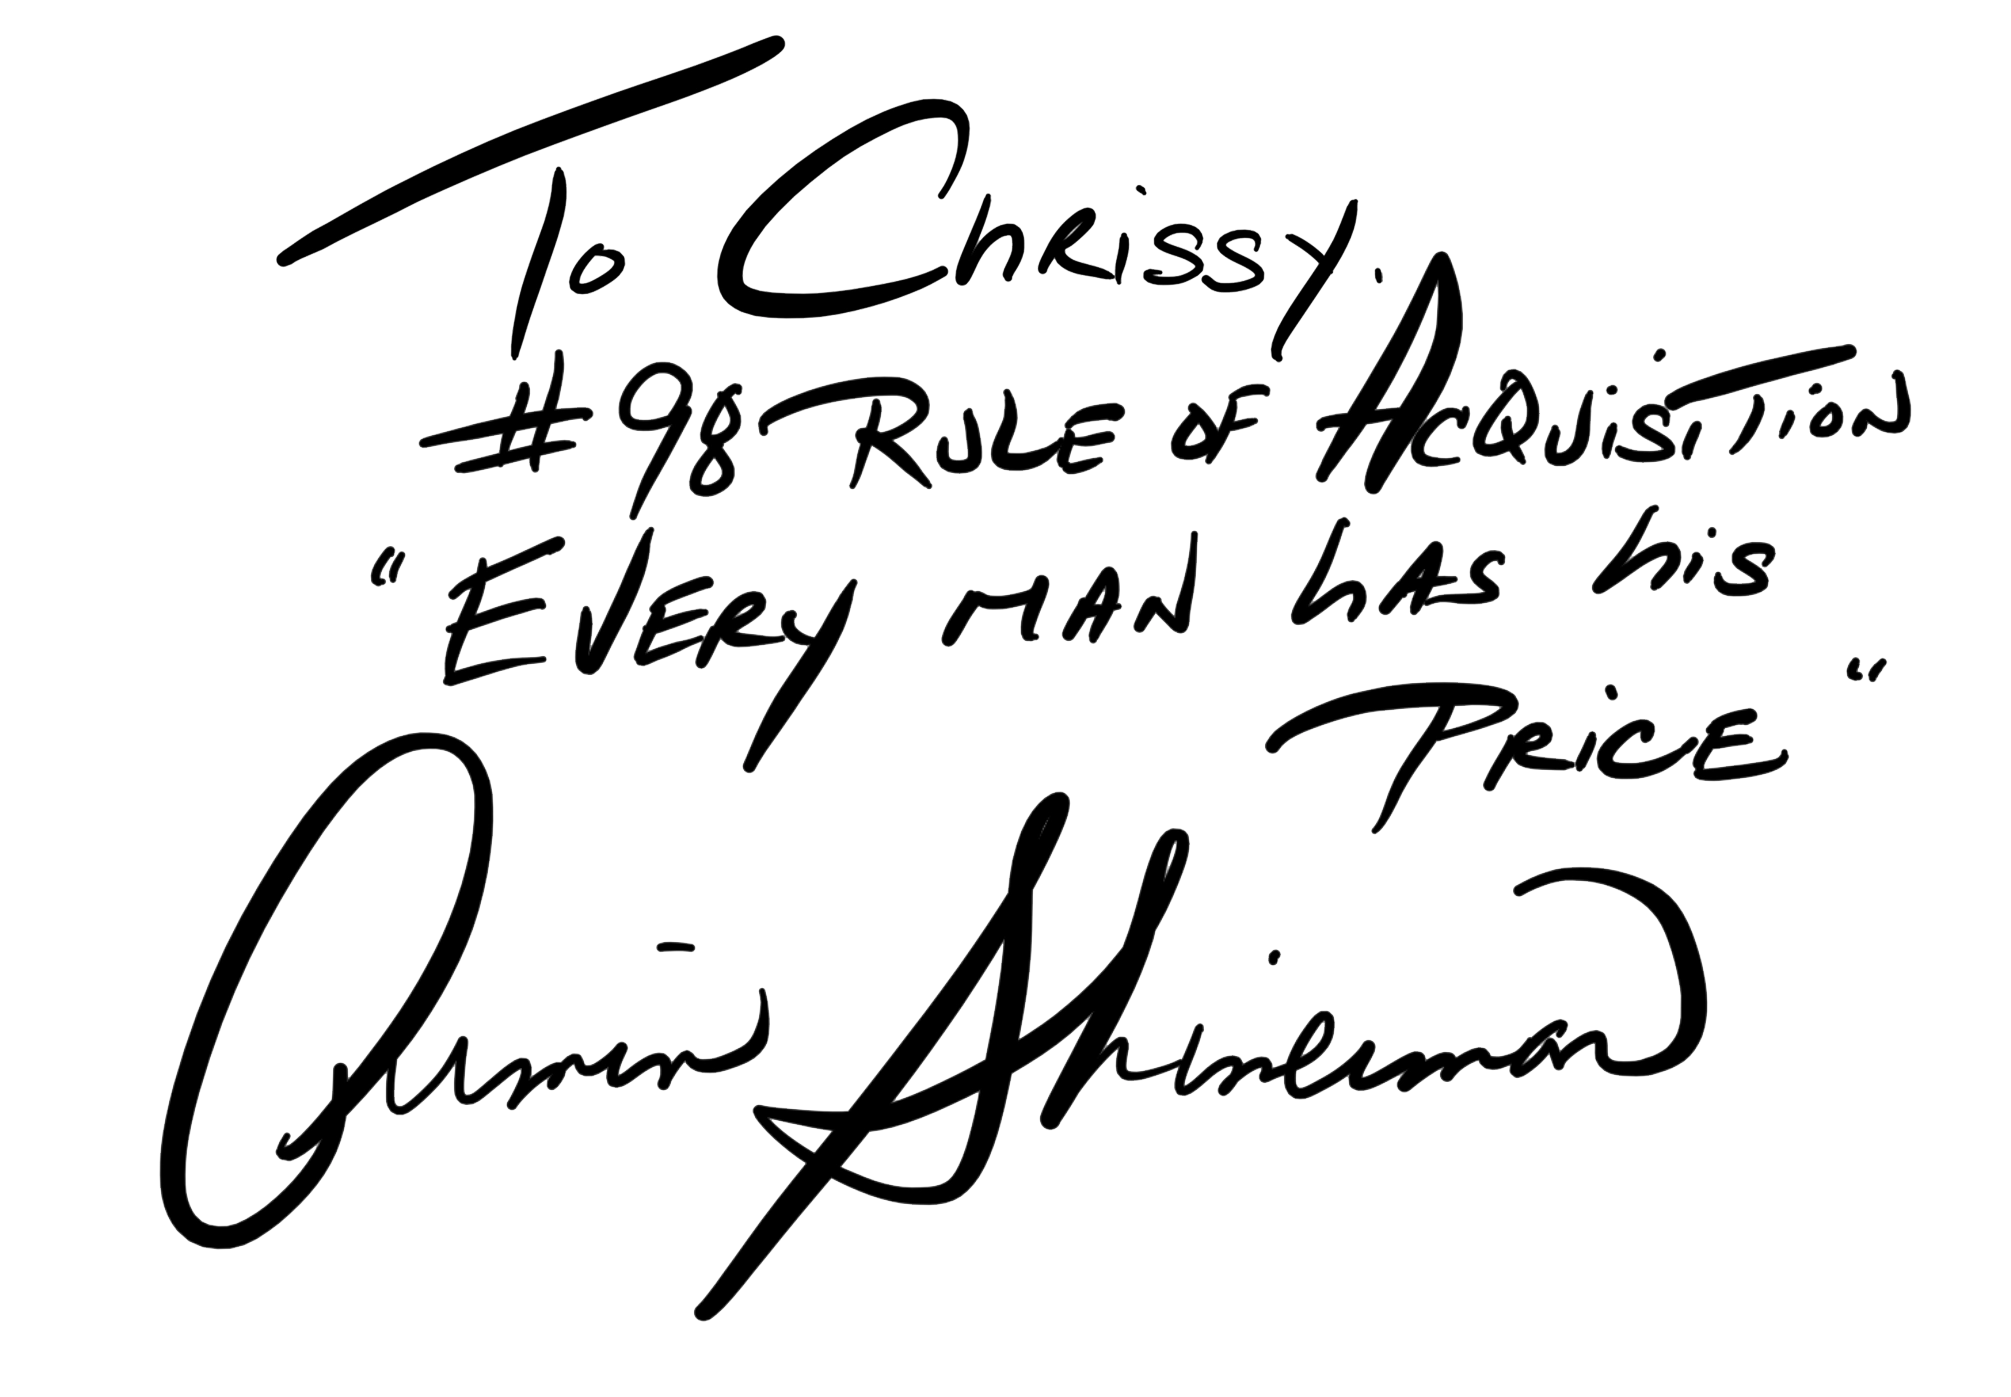 To Chrissy.
#98 Rule of Acquisition
"Every man has his
Price"
Armin Shimerman